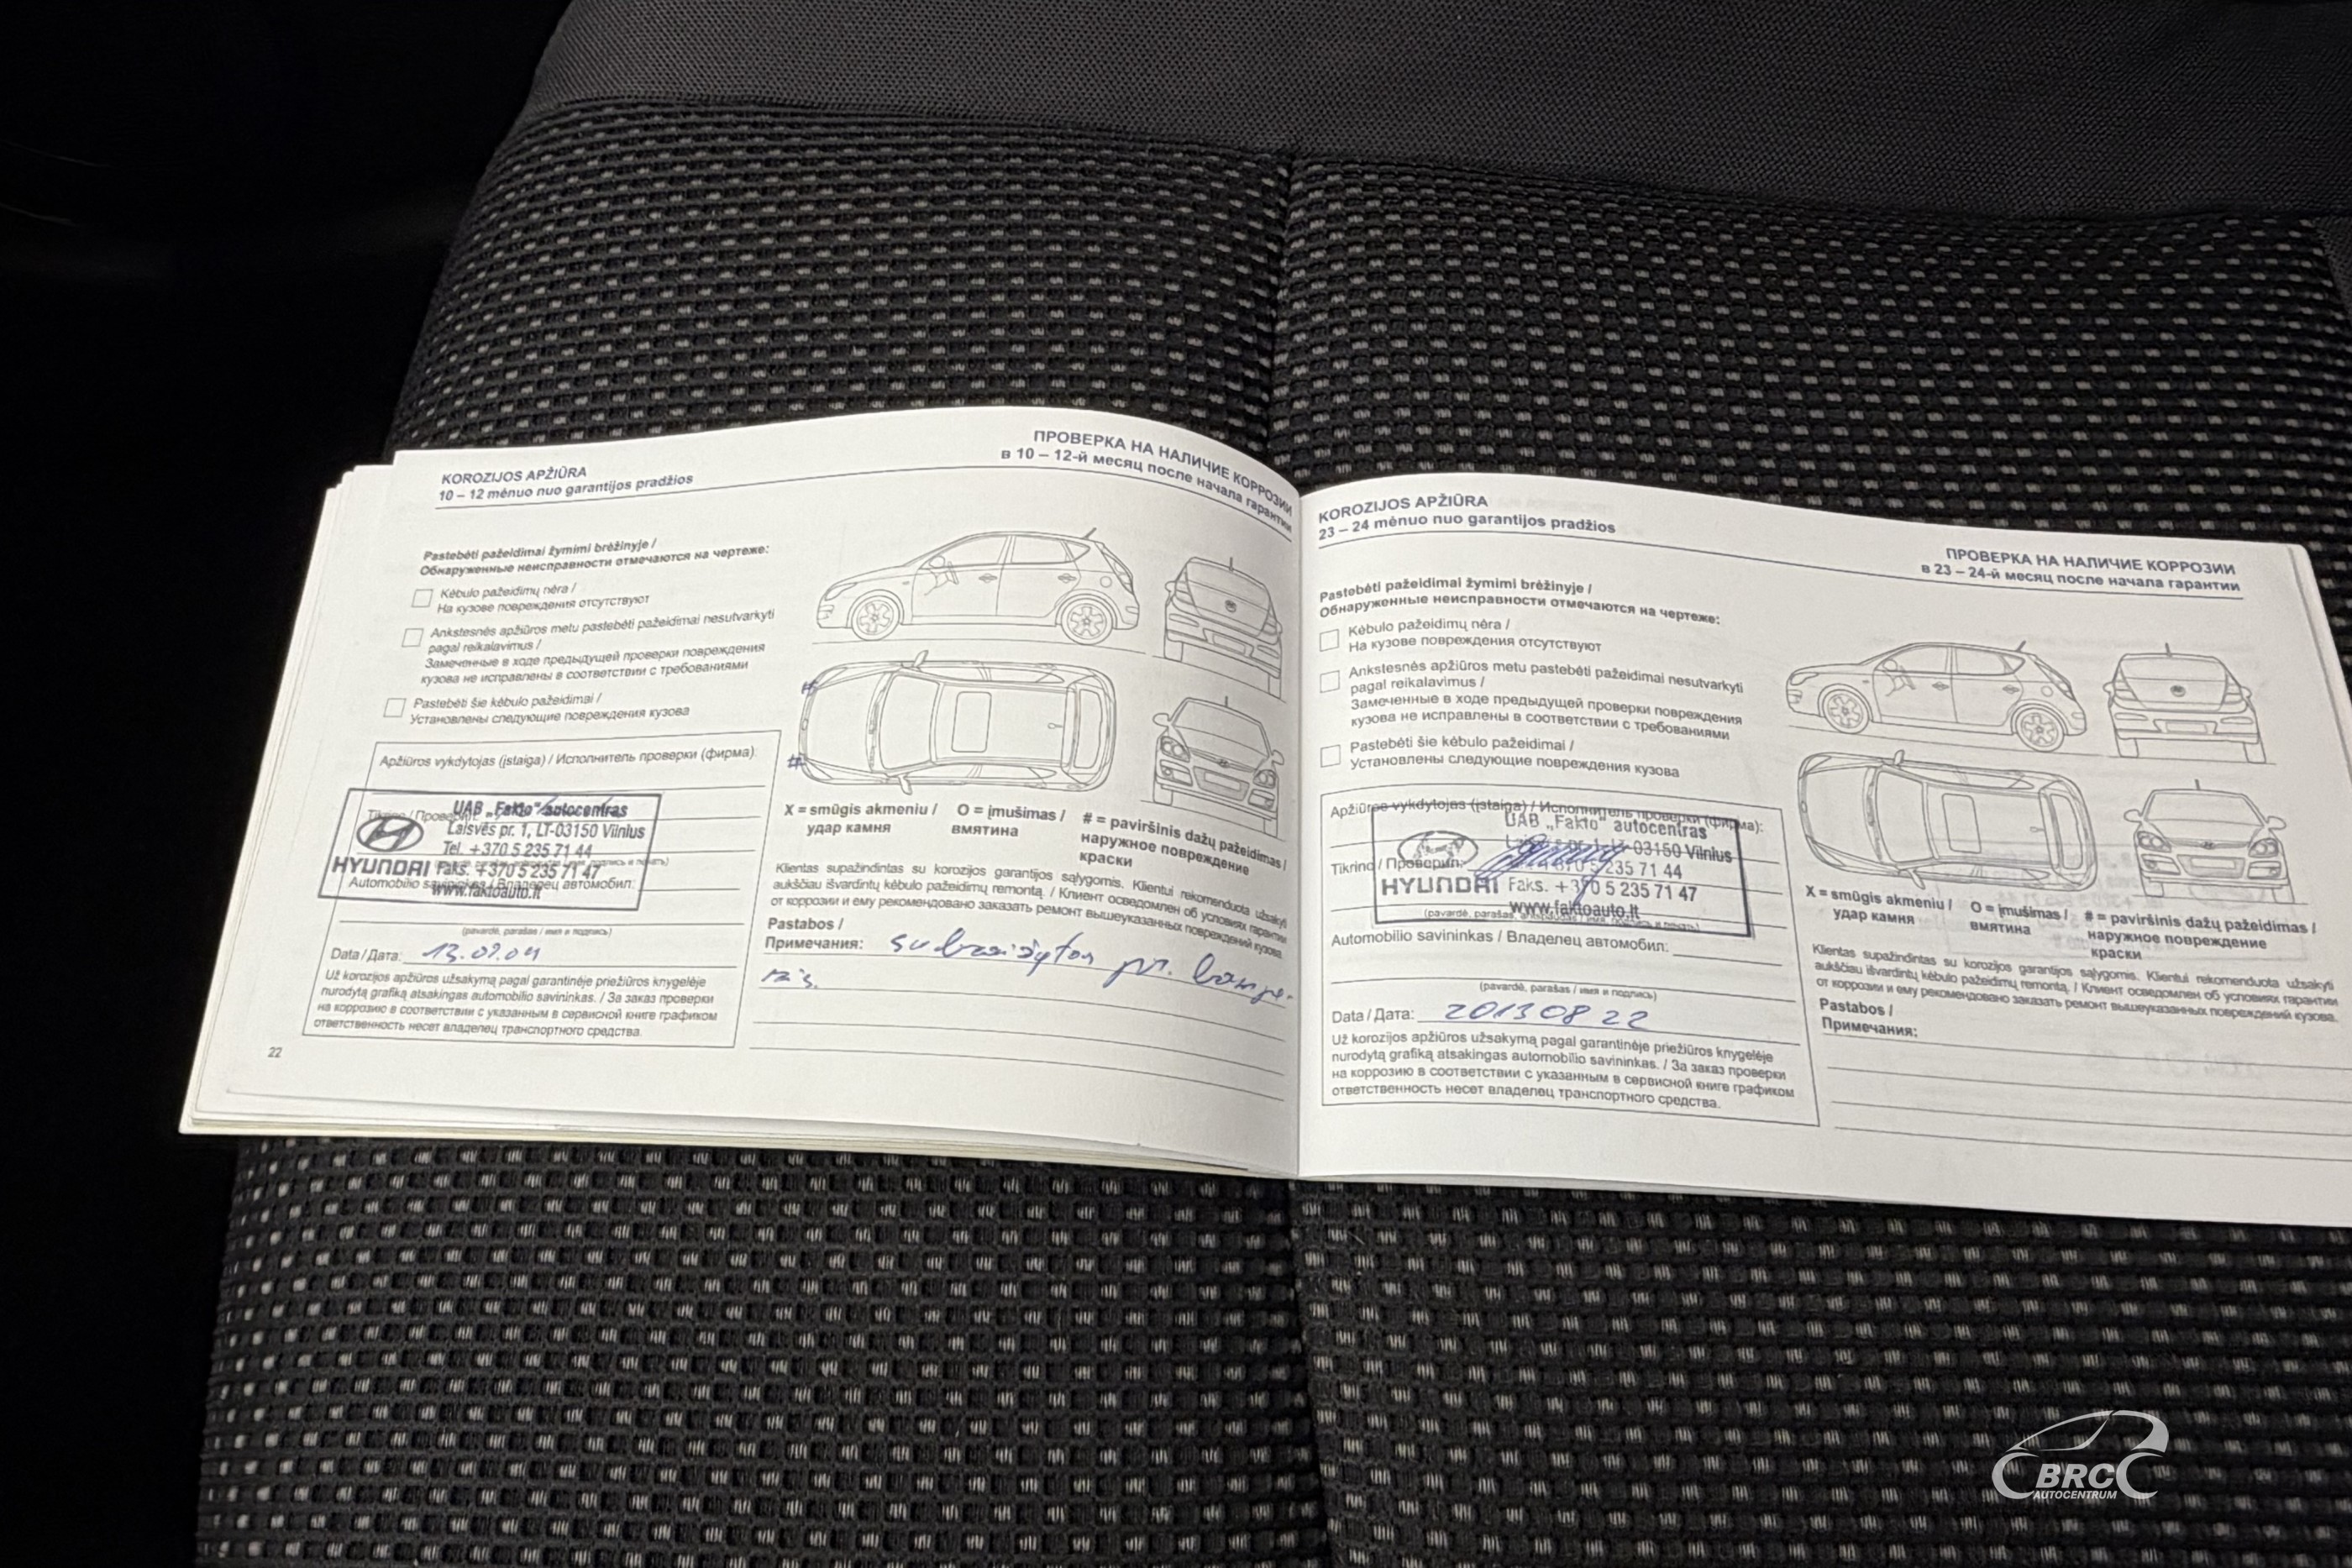 KOROZIJOS APŽIŪRA
10 – 12 mėnuo nuo garantijos pradžios
ПРОВЕРКА НА НАЛИЧИЕ КОРРОЗИИ
в 10 – 12-й месяц после начала гарантии
Pastebėti pažeidimai žymimi brėžinyje /
Обнаруженные неисправности отмечаются на чертеже:
Kėbulo pažeidimų nėra /
На кузове повреждения отсутствуют
Ankstesnės apžiūros metu pastebėti pažeidimai nesutvarkyti
pagal reikalavimus /
Замеченные в ходе предыдущей проверки повреждения
кузова не исправлены в соответствии с требованиями
Pastebėti šie kėbulo pažeidimai /
Установлены следующие повреждения кузова
Apžiūros vykdytojas (įstaiga) / Исполнитель проверки (фирма):
UAB „Fakto“ autocentras
Laisvės pr. 1, LT-03150 Vilnius
Tel. +370 5 235 71 44
HYUNDAI Faks. +370 5 235 71 47
www.faktoauto.lt
Automobilio savininkas / Владелец автомобил:
(pavardė, parašas / имя и подпись)
Data / Дата:
Už korozijos apžiūros užsakymą pagal garantinėje priežiūros knygelėje
nurodytą grafiką atsakingas automobilio savininkas. / За заказ проверки
на коррозию в соответствии с указанным в сервисной книге графиком
ответственность несет владелец транспортного средства.
22
#
#
X = smūgis akmeniu /
удар камня
O = įmušimas /
вмятина
# = paviršinis dažų pažeidimas /
наружное повреждение
краски
Klientas supažindintas su korozijos garantijos sąlygomis. Klientui rekomenduota užsakyti
aukščiau išvardintų kėbulo pažeidimų remontą. / Клиент осведомлен об условиях гарантии
от коррозии и ему рекомендовано заказать ремонт вышеуказанных повреждений кузова.
Pastabos /
Примечания:
KOROZIJOS APŽIŪRA
23 – 24 mėnuo nuo garantijos pradžios
ПРОВЕРКА НА НАЛИЧИЕ КОРРОЗИИ
в 23 – 24-й месяц после начала гарантии
Pastebėti pažeidimai žymimi brėžinyje /
Обнаруженные неисправности отмечаются на чертеже:
Kėbulo pažeidimų nėra /
На кузове повреждения отсутствуют
Ankstesnės apžiūros metu pastebėti pažeidimai nesutvarkyti
pagal reikalavimus /
Замеченные в ходе предыдущей проверки повреждения
кузова не исправлены в соответствии с требованиями
Pastebėti šie kėbulo pažeidimai /
Установлены следующие повреждения кузова
Apžiūros vykdytojas (įstaiga) / Исполнитель проверки (фирма):
UAB „Fakto“ autocentras
LT-03150 Vilnius
Tikrino / Проверил:
5 235 71 44
HYUNDAI Faks. +370 5 235 71 47
www.faktoauto.lt
Automobilio savininkas / Владелец автомобил:
(pavardė, parašas / имя и подпись)
Data / Дата: 2013 08 22
Už korozijos apžiūros užsakymą pagal garantinėje priežiūros knygelėje
nurodytą grafiką atsakingas automobilio savininkas. / За заказ проверки
на коррозию в соответствии с указанным в сервисной книге графиком
ответственность несет владелец транспортного средства.
X = smūgis akmeniu /
удар камня
O = įmušimas /
вмятина
# = paviršinis dažų pažeidimas /
наружное повреждение
краски
Klientas supažindintas su korozijos garantijos sąlygomis. Klientui rekomenduota užsakyti
aukščiau išvardintų kėbulo pažeidimų remontą. / Клиент осведомлен об условиях гарантии
от коррозии и ему рекомендовано заказать ремонт вышеуказанных повреждений кузова.
Pastabos /
Примечания:
BRC
AUTOCENTRUM